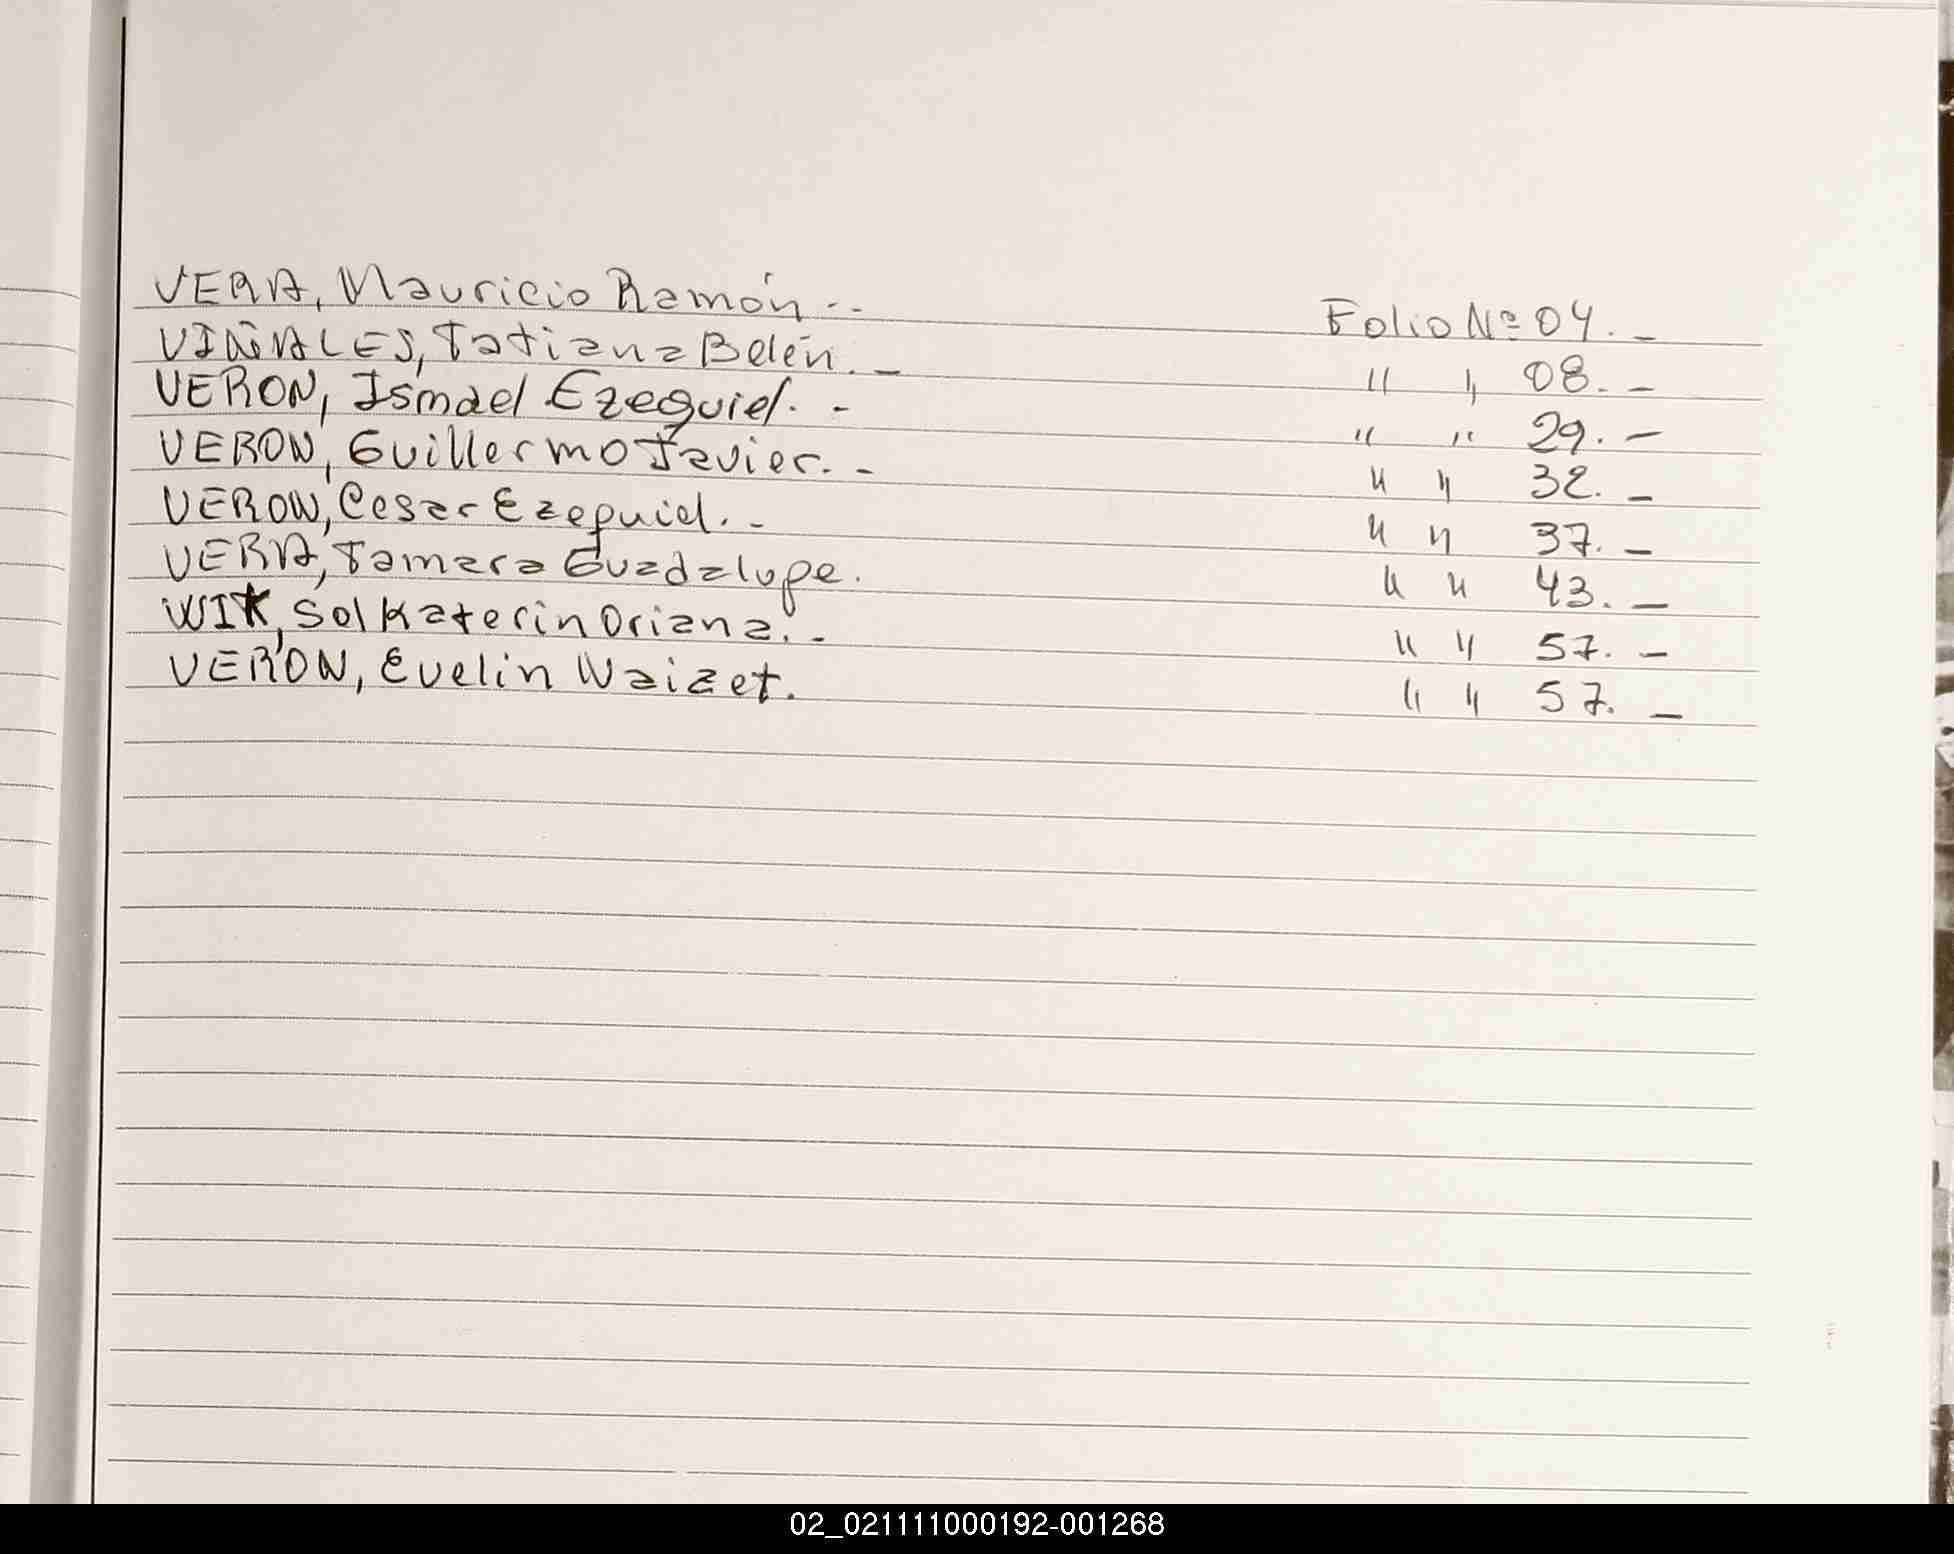 VERA, Mauricio Ramón.- Folio Nº 04.-
VIÑALES, Tatiana Belén.- " " 08.-
VERON, Ismael Ezequiel.- " " 29.-
VERON, Guillermo Javier.- " " 32.-
VERON, Cesar Ezequiel.- " " 37.-
VERA, Tamara Guadalupe. " " 43.-
WIK, Sol Katerin Oriana.- " " 57.-
VERON, Evelin Naizet. " " 57.-
02_021111000192-001268